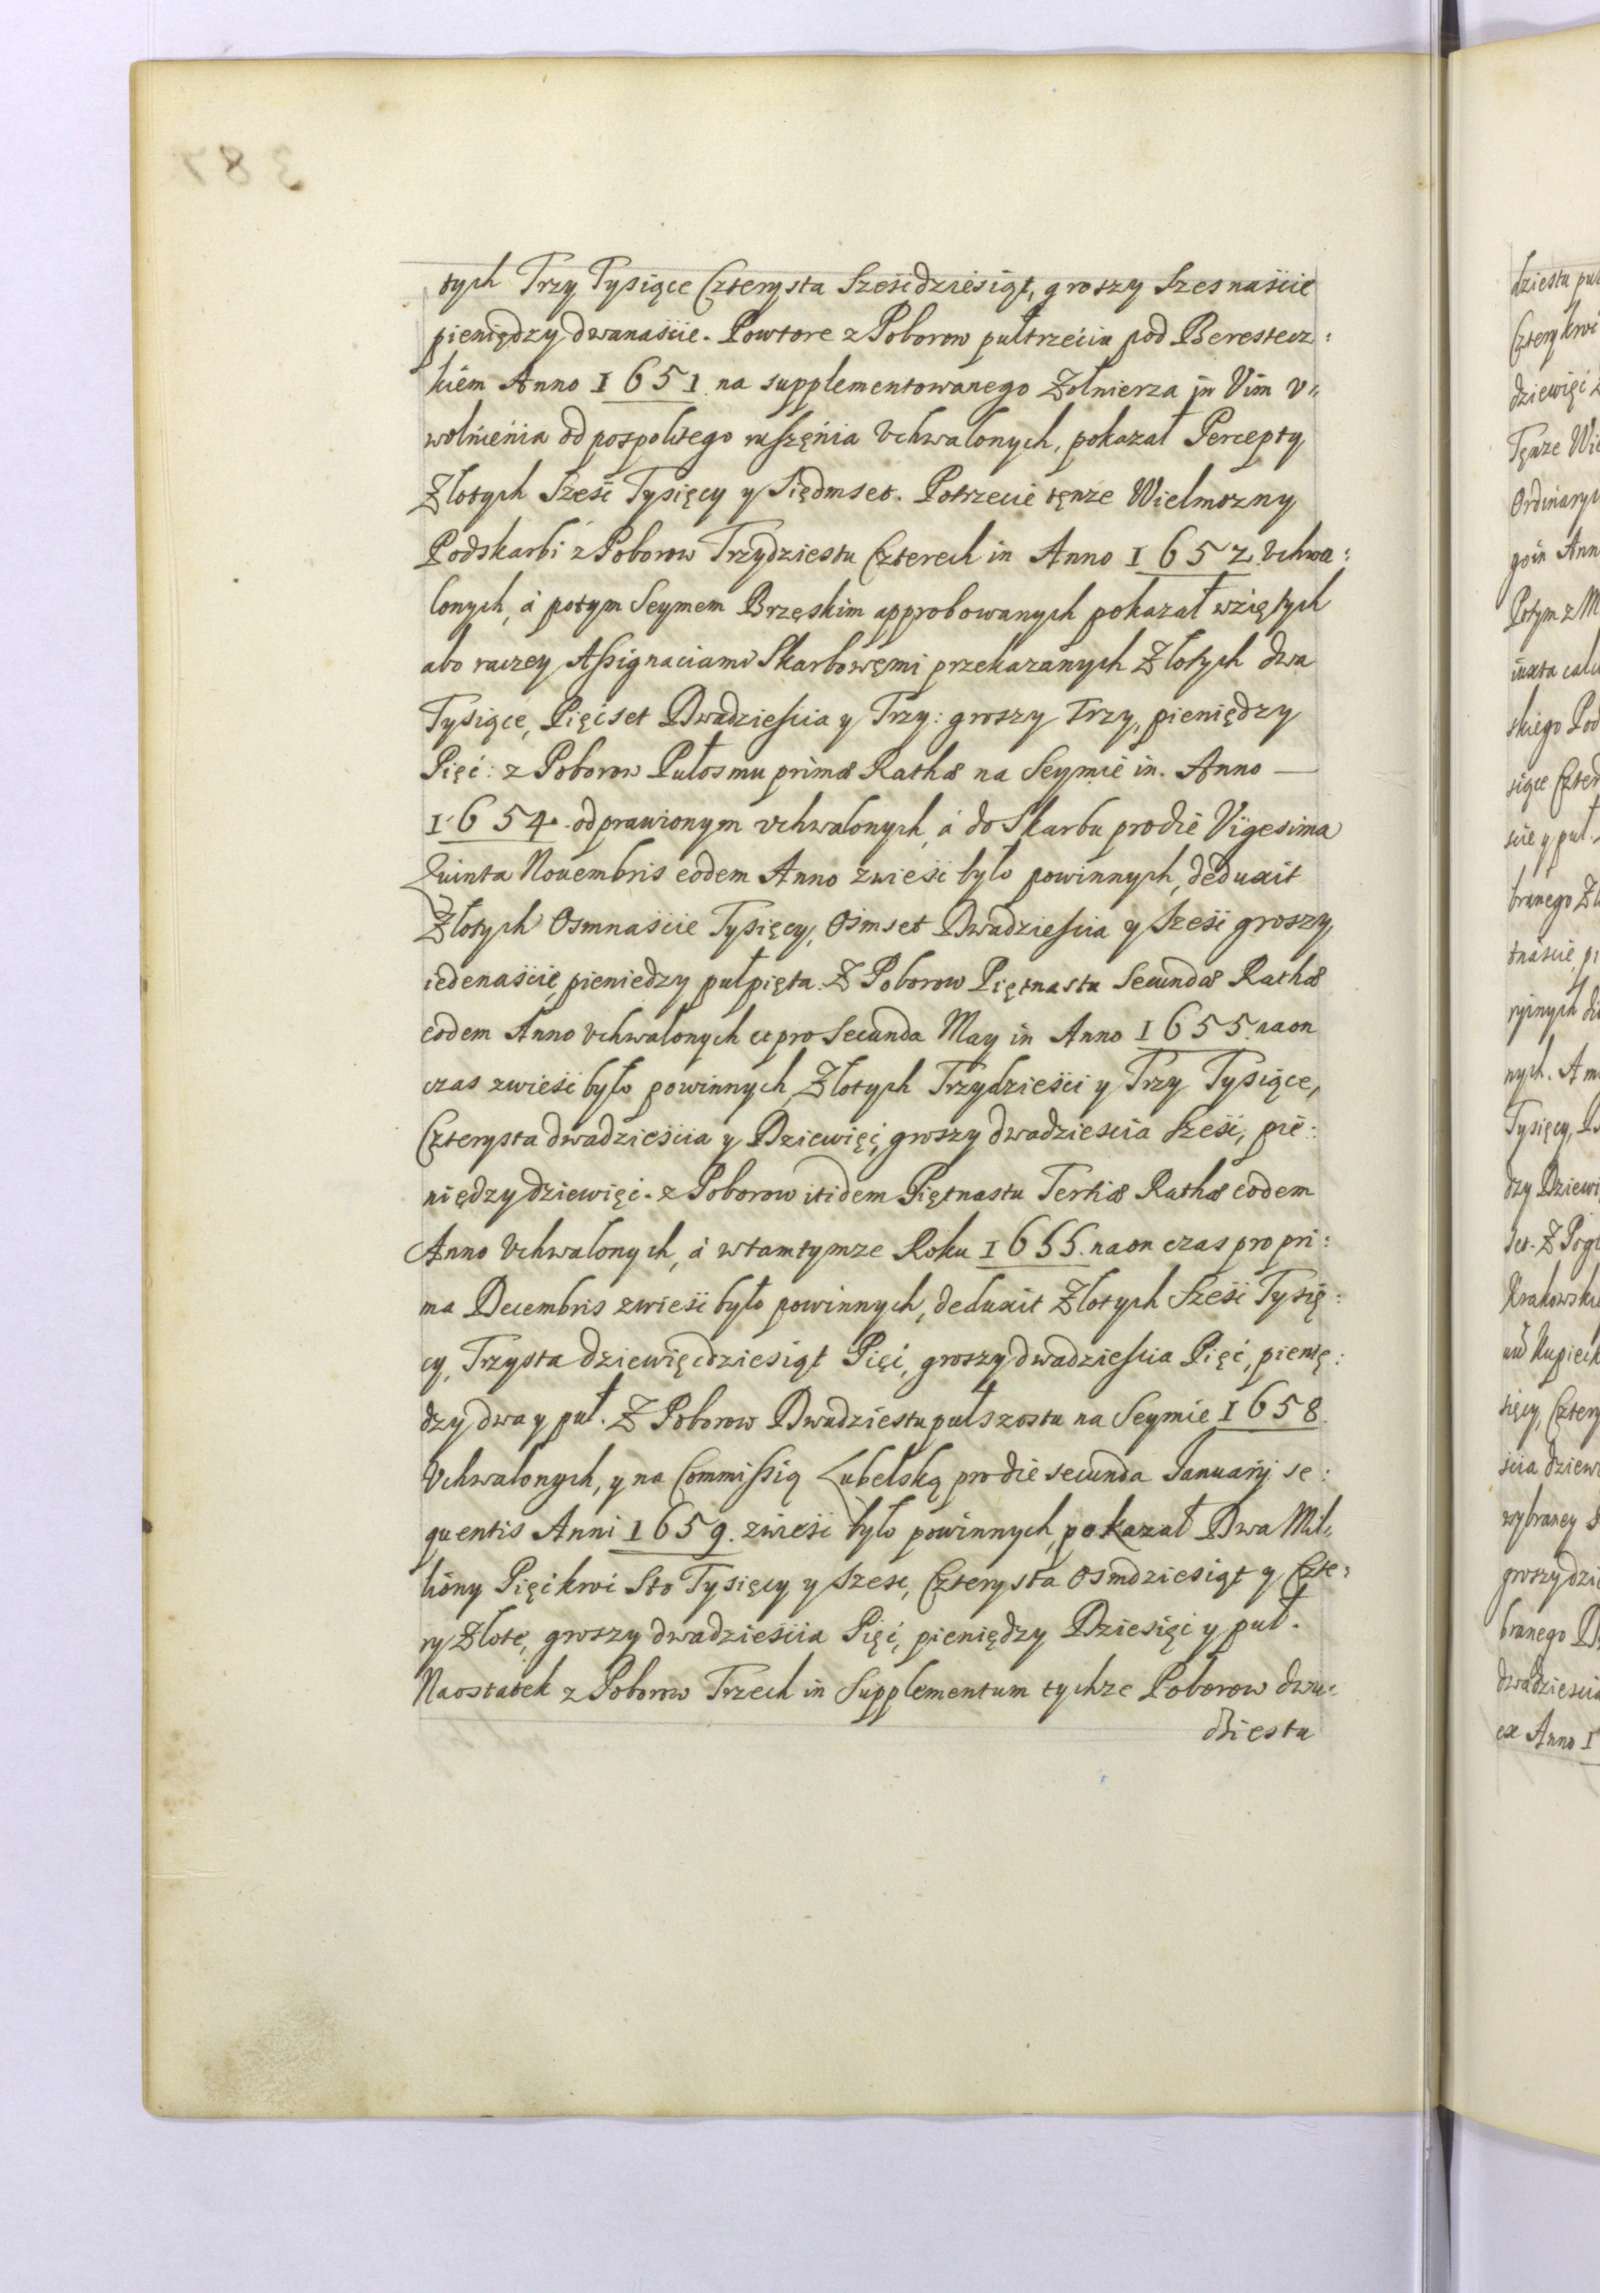 tych Trzy Tysiące Czterysta Sześćdziesiąt, groszy Szesnaście
pieniędzy dwanaście. Powtore z Poborow pułtrzecia pod Berestecz:
kiem Anno 1651. na supplementowanego Zołnierza in Vim v=
wolnienia od pospolitego ruszęnia Vchwalonych, pokazał Percepty
Złotych Sześć Tysięcy y Siędmset. Potrzecie tęnże Wielmozny
Podskarbi z Poborow Trzydziestu Czterech in Anno 1652. Vchwa:
lonych, á potym Seymem Brzęskim approbowanych pokazał wziętych
abo raczey Assignaciami Skarbowęmi przekazanych Złotych dwa
Tysiące, Pięćset Dwadzieścia y Trzy: groszy Trzy, pieniędzy
Pięć: z Poborow Pułosmu primæ Rathæ na Seymie in. Anno —
1654. odprawionym vchwalonych, á do Skarbu pro die Vigesima
Quinta Nouembris eodem Anno zwieść było powinnych, deduxit
Złotych Osmnaście Tysięcy, Ośmset Dwadzieścia y Sześć groszy
iedenaście, pieniedzy pułpięta. Z Poborow Piętnastu Secundæ Rathæ
eodem Anno Vchwalonych et pro Secunda May in Anno 1655. na on
czas zwieść było powinnych, Złotych Trzydzieści y Trzy Tysiące,
Czterysta dwadzieścia y Dziewięć, groszy dwadziescia Sześć, pie:
niędzy dziewięć. z Poborow itidem Piętnastu Tertiæ Rathæ eodem
Anno Vchwalonych, á w tamtymze Roku 1655. na on czas pro pri:
ma Decembris zwieść było powinnych, deduxit Złotych Sześć Tysię:
cy, Trzysta dziewięćdziesiąt Pięć, groszy dwadzieścia Pięć, pienię:
dzy dwa y puł. Z Poborow Dwudziestu pułszosta na Seymie 1658.
Vchwalonych, y na Commissią Lubelską pro die secunda Januarij se:
quentis Anni 1659. zwieść było powinnych, pokazał Dwa Mil=
liony Pięćkroć Sto Tysięcy y Szesc, Czterysta Osmdziesiąt y Czte:
ry Złote, groszy dwadzieścia Pięć, pieniędzy Dziesięć y puł.
Naostatek z Poborow Trzech in Supplementum tychze Poborow dwu:
dziestu